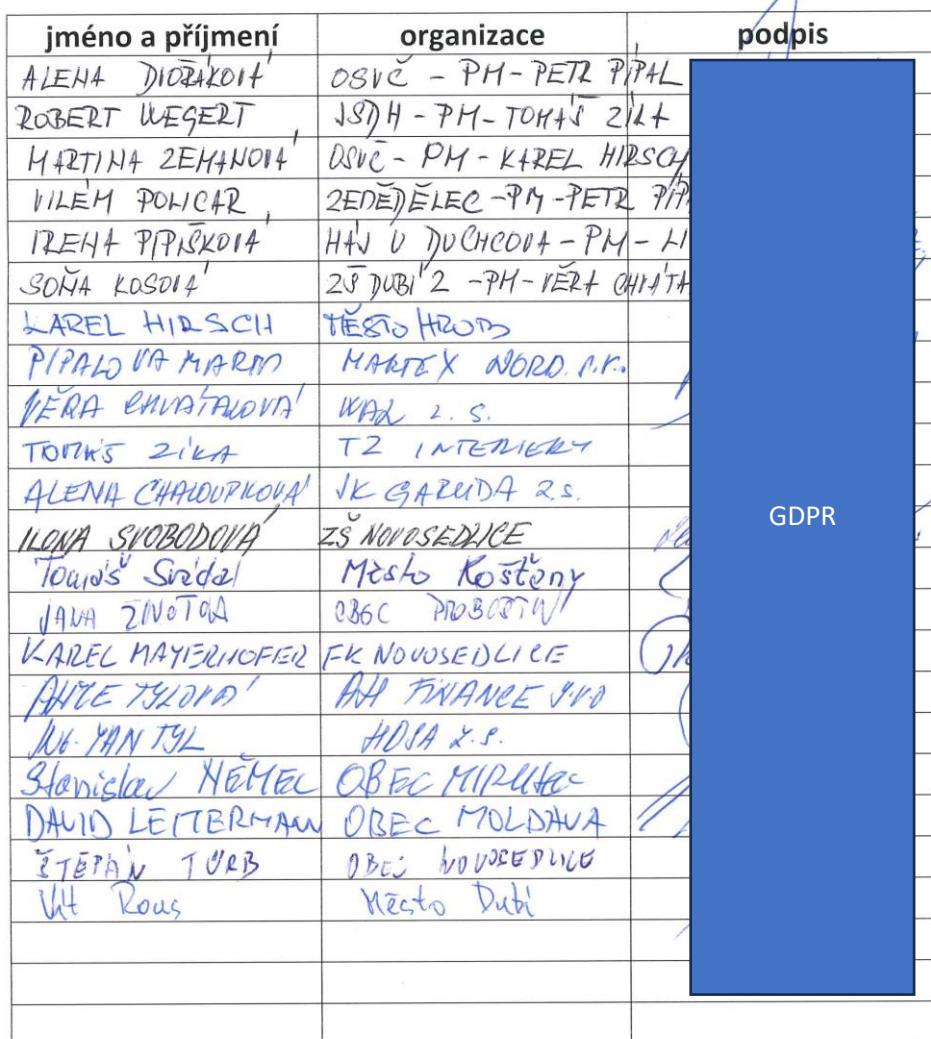 jméno a příjmení organizace podpis
ALENA DVOŘÁKOVÁ OSVČ - PM - PETR PÍPAL
ROBERT WEGERT JSDH - PM - TOMÁŠ ZÍKA
MARTINA ZEMANOVÁ OSVČ - PM - KAREL HIRSCH
VILÉM POLICAR ZEDĚDĚLEC - PM - PETR
IRENA PIPIŠKOVÁ HÁJ U DUCHCOVA - PM -
SOŇA KOSOVÁ ZŠ DUBÍ 2 - PM - VĚRA
KAREL HIRSCH MĚSTO HROB
PÍPALOVA MARTEX NORD
VĚRA CHVÁTALOVÁ z. s.
TOMÁŠ ZÍKA TZ INTERIERY
ALENA CHALOUPKOVÁ JK GARUDA z.s.
ILONA SVOBODOVÁ ZŠ NOVOSEDLICE
Tomáš Město Košťany
JANA OBEC PROBOŠTOV
KAREL MAYERHOFER FK NOVOSEDLICE
TYLOVÁ AH FINANCE
ING. JAN TYL z.s.
Stanislav NĚMEC OBEC
DAVID LEITERMANN OBEC MOLDAVA
ŠTĚPÁN OBEC NOVOSEDLICE
Vít Rous Město Dubí
GDPR